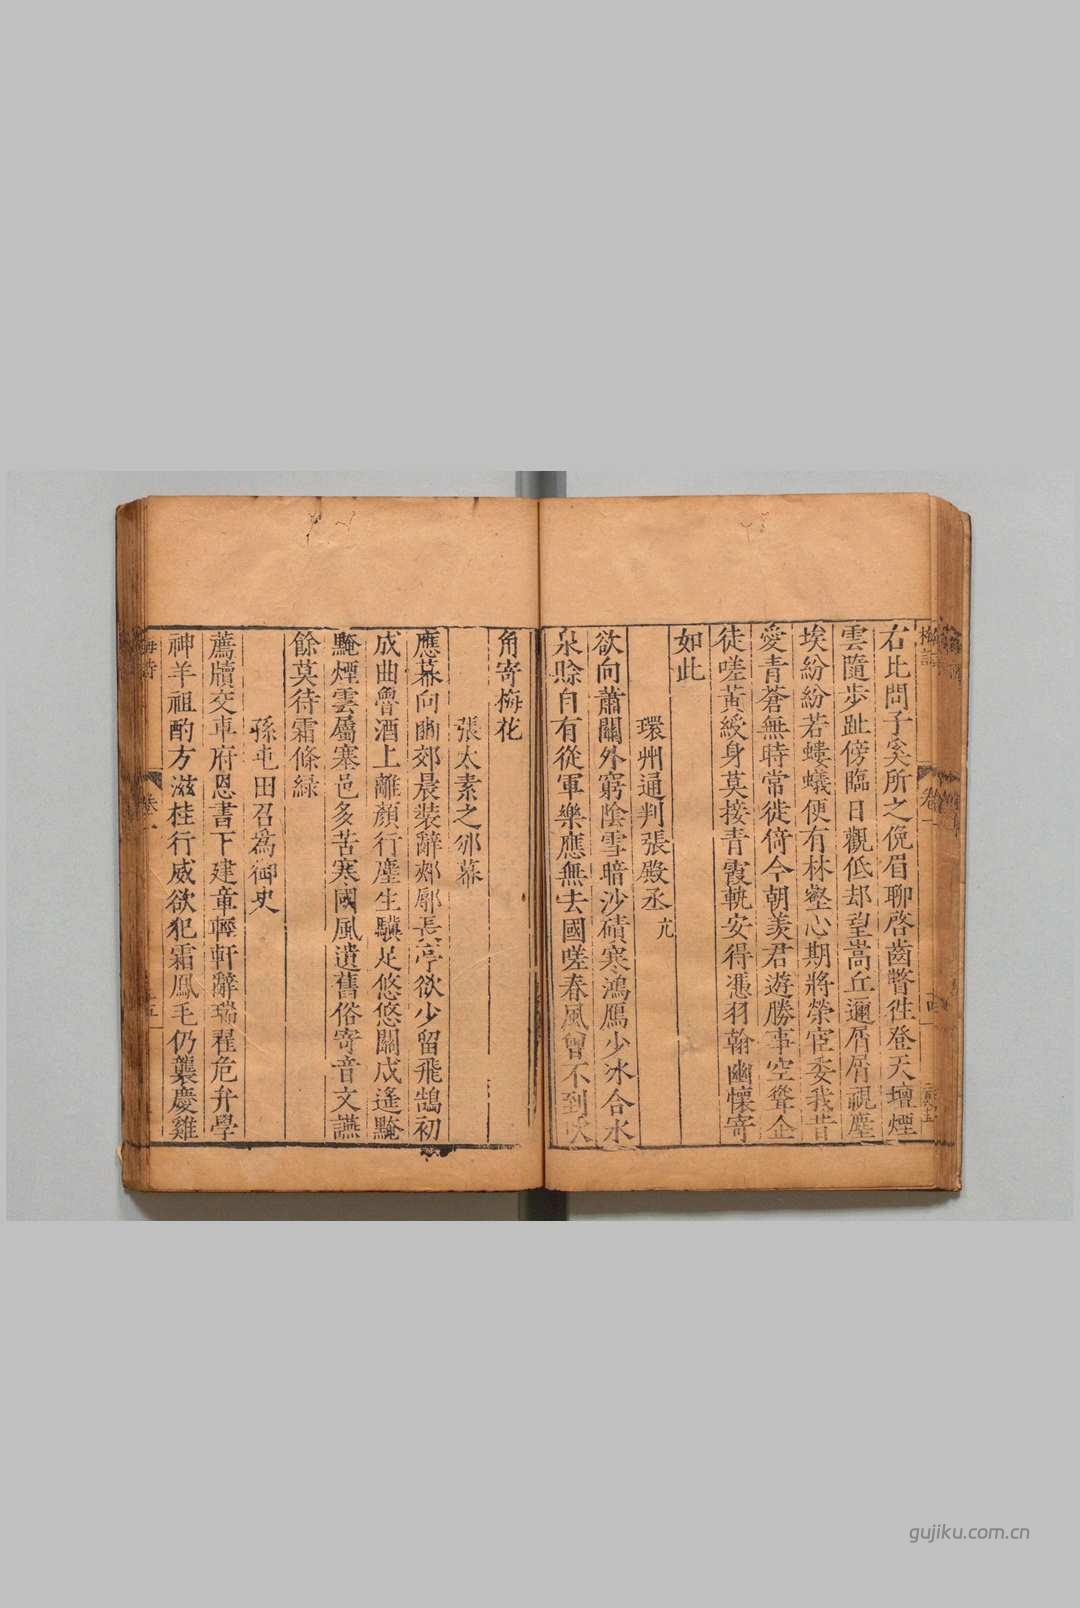 右比問子奚所之俛眉聊啓齒瞥徃登天壇煙
雲隨步趾傍臨日觀低却望嵩丘邇屑屑視塵
埃紛紛若螻蟻便有林壑心期將榮宦委我昔
愛青蒼無時常徙倚今朝羡君遊勝事空聳企
徒嗟黃綬身莫接青霞軌安得憑羽翰幽懷寄
如此
環州通判張殿丞 亢
欲向蕭關外窮陰雪暗沙磧寒鴻鴈少冰合水
泉賖自有從軍樂應無去國嗟春風曾不到吹
角寄梅花
張太素之邠幕
應幕向豳郊晨裝辭郟鄏長亭欲少留飛鵠初
成曲罍酒上離顏行塵生驥足悠悠關戍遙黤
黤煙雲屬塞邑多苦寒國風遺舊俗寄音文讌
餘莫待霜條緑
孫屯田召爲御史
薦牘交車府恩書下建章輕軒辭瑞程危弁學
神羊祖酌方滋桂行威欲犯霜鳳毛仍襲慶雞
卷一
gujiku.com.cn